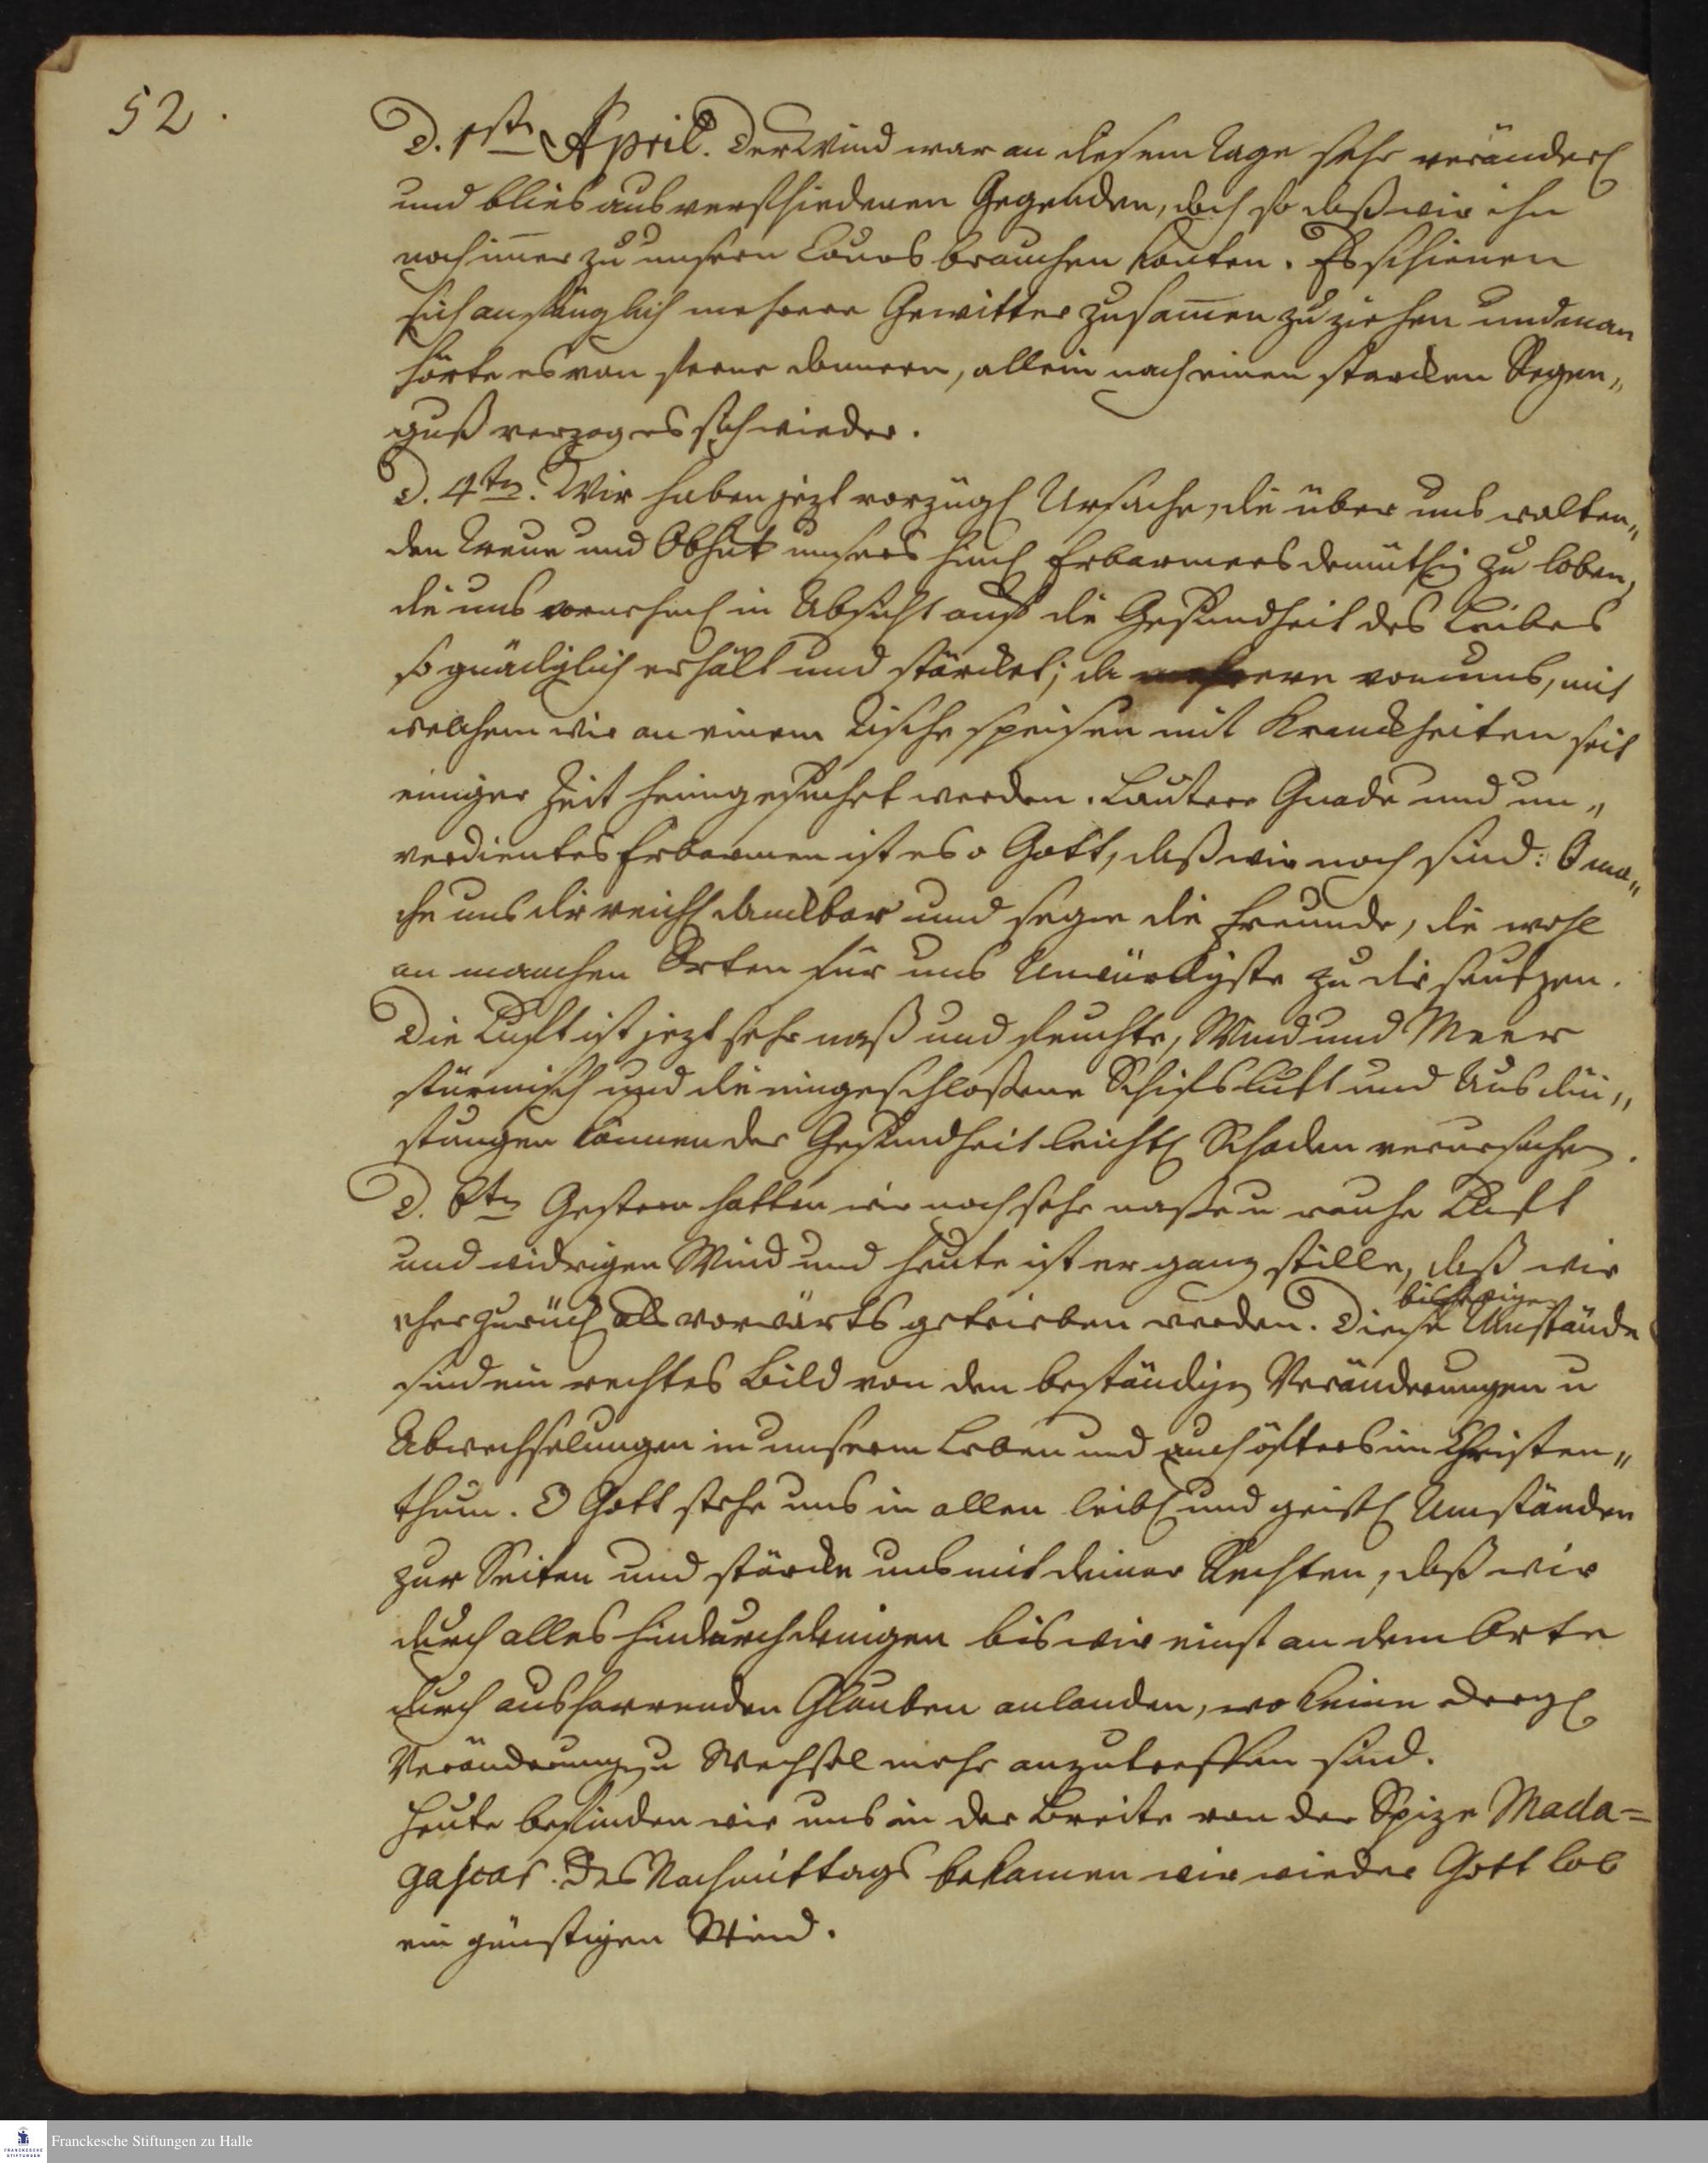 52.
D. 1st April. Der Wind war an diesem Tage sehr veränderl
und blies aus verschiedenen Gegenden, doch so daß wir ihn
noch im̅er zu unsern Cours brauchen konten. Es schienen
sich anfänglich mehrere Gewitter zusam̅en zu ziehen und man
hörte es von ferne donnern, allein nach einen starcken Regen„
guß verzog es sich wieder.
D. 4ten. Wir haben jezt vorzügl Ursache, die über uns walten„
den Treue und Obhut unsers himl Erbarmers demüthig zu loben,
die uns vornehml in Absicht auf die Gesundheit des Leibes
so gnädiglich erhält und stärcket; da mehrere von uns, mit
welchem wir an einem Tische speisen mit Kranckheiten seit
einiger Zeit heimgesuchet werden. Lautere Gnade und un„
verdientes Erbarmen ist es o Gott, daß wir noch sind: O ma„
che uns dir reichl danckbar und segne die Freunde, die wohl
an manchen Orten für uns Unwürdigste zu dir seufzen.
Die Luft ist jezt sehr naß und feuchte, Wind und Meer
stürmisch und die eingeschloßene Schifsluft und Ausdün„
stungen können der Gesundheit leichtl Schaden verursachen.
D. 6ten Gestern hatten wir noch sehr naße u rauhe Luft
und widrigen Wind und heute ist er ganz stille, daß wir
eher zurück als vorwärts getrieben werden. Diese bisherigen Umstände
sind ein rechtes Bild von den beständigen Veränderungen u
Abwechselungen in unserm Leben und auch öfters im Christen„
thum. O Gott stehe uns in allen leibl und geistl Umständen
zur Seiten und stärcke uns mit deiner Rechten, daß wir
durch alles hindurchdringen bis wir einst an dem Orte
durch ausharrenden Glauben anlanden, wo keine dergl
Veränderungen u Wechsel mehr anzutreffen sind.
Heute befinden wir uns in der Breite von der Spize Mada=
gascar. Des Nachmittags bekamen wir wieder Gott lob
ein günstigen Wind.
Franckesche Stiftungen zu Halle